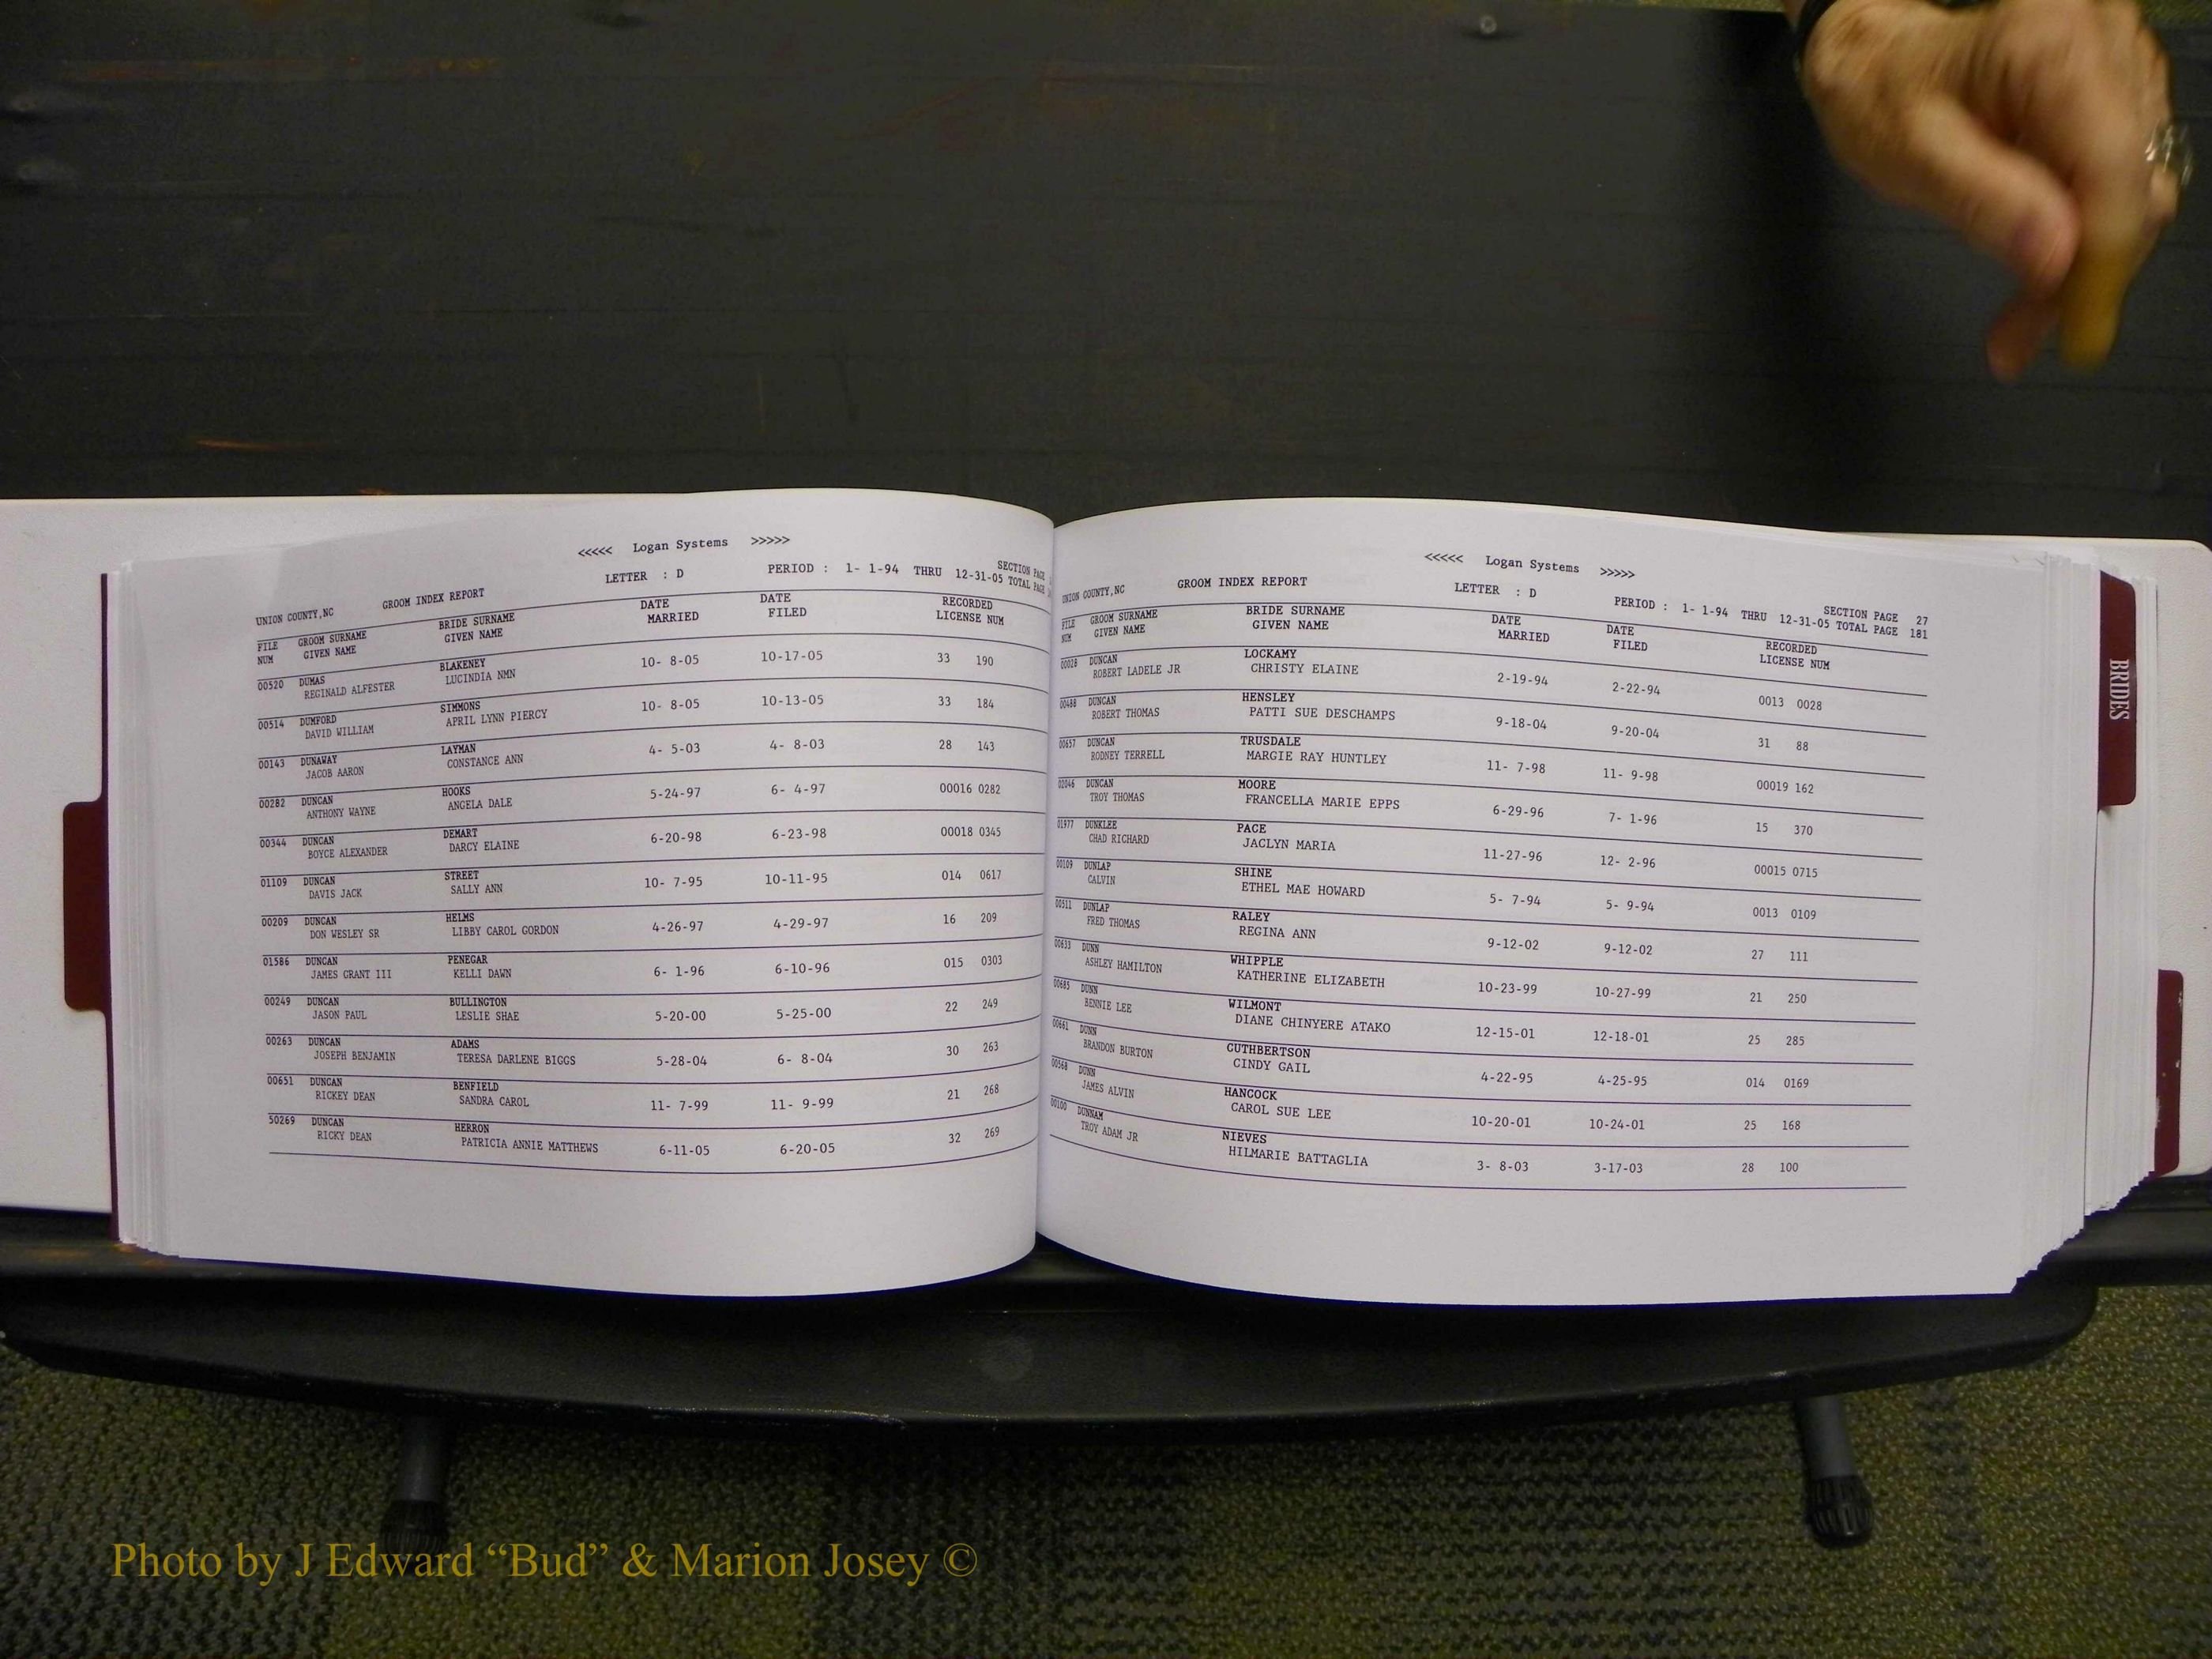 <<<<< Logan Systems >>>>>
UNION COUNTY,NC GROOM INDEX REPORT LETTER : D PERIOD : 1- 1-94 THRU 12-31-05 SECTION PAGE
TOTAL PAGE
FILE GROOM SURNAME BRIDE SURNAME DATE DATE RECORDED
NUM GIVEN NAME GIVEN NAME MARRIED FILED LICENSE NUM
00520 DUMAS BLAKENEY 10- 8-05 10-17-05 33 190
REGINALD ALFESTER LUCINDIA NMN
00514 DUMFORD SIMMONS 10- 8-05 10-13-05 33 184
DAVID WILLIAM APRIL LYNN PIERCY
00143 DUNAWAY LAYMAN 4- 5-03 4- 8-03 28 143
JACOB AARON CONSTANCE ANN
00282 DUNCAN HOOKS 5-24-97 6- 4-97 00016 0282
ANTHONY WAYNE ANGELA DALE
00344 DUNCAN DEMART 6-20-98 6-23-98 00018 0345
BOYCE ALEXANDER DARCY ELAINE
01109 DUNCAN STREET 10- 7-95 10-11-95 014 0617
DAVIS JACK SALLY ANN
00209 DUNCAN HELMS 4-26-97 4-29-97 16 209
DON WESLEY SR LIBBY CAROL GORDON
01586 DUNCAN PENEGAR 6- 1-96 6-10-96 015 0303
JAMES GRANT III KELLI DAWN
00249 DUNCAN BULLINGTON 5-20-00 5-25-00 22 249
JASON PAUL LESLIE SHAE
00263 DUNCAN ADAMS 5-28-04 6- 8-04 30 263
JOSEPH BENJAMIN TERESA DARLENE BIGGS
00651 DUNCAN BENFIELD 11- 7-99 11- 9-99 21 268
RICKEY DEAN SANDRA CAROL
50269 DUNCAN HERRON 6-11-05 6-20-05 32 269
RICKY DEAN PATRICIA ANNIE MATTHEWS
<<<<< Logan Systems >>>>>
UNION COUNTY,NC GROOM INDEX REPORT LETTER : D PERIOD : 1- 1-94 THRU 12-31-05 SECTION PAGE 27
TOTAL PAGE 181
FILE GROOM SURNAME BRIDE SURNAME DATE DATE RECORDED
NUM GIVEN NAME GIVEN NAME MARRIED FILED LICENSE NUM
00028 DUNCAN LOCKAMY 2-19-94 2-22-94 0013 0028
ROBERT LADELE JR CHRISTY ELAINE
00488 DUNCAN HENSLEY 9-18-04 9-20-04 31 88
ROBERT THOMAS PATTI SUE DESCHAMPS
00657 DUNCAN TRUSDALE 11- 7-98 11- 9-98 00019 162
RODNEY TERRELL MARGIE RAY HUNTLEY
02046 DUNCAN MOORE 6-29-96 7- 1-96 15 370
TROY THOMAS FRANCELLA MARIE EPPS
01977 DUNKLEE PACE 11-27-96 12- 2-96 00015 0715
CHAD RICHARD JACLYN MARIA
00109 DUNLAP SHINE 5- 7-94 5- 9-94 0013 0109
CALVIN ETHEL MAE HOWARD
00511 DUNLAP RALEY 9-12-02 9-12-02 27 111
FRED THOMAS REGINA ANN
00633 DUNN WHIPPLE 10-23-99 10-27-99 21 250
ASHLEY HAMILTON KATHERINE ELIZABETH
00685 DUNN WILMONT 12-15-01 12-18-01 25 285
BENNIE LEE DIANE CHINYERE ATAKO
00661 DUNN CUTHBERTSON 4-22-95 4-25-95 014 0169
BRANDON BURTON CINDY GAIL
00568 DUNN HANCOCK 10-20-01 10-24-01 25 168
JAMES ALVIN CAROL SUE LEE
00100 DUNNAM NIEVES 3- 8-03 3-17-03 28 100
TROY ADAM JR HILMARIE BATTAGLIA
BRIDES
Photo by J Edward “Bud” & Marion Josey ©